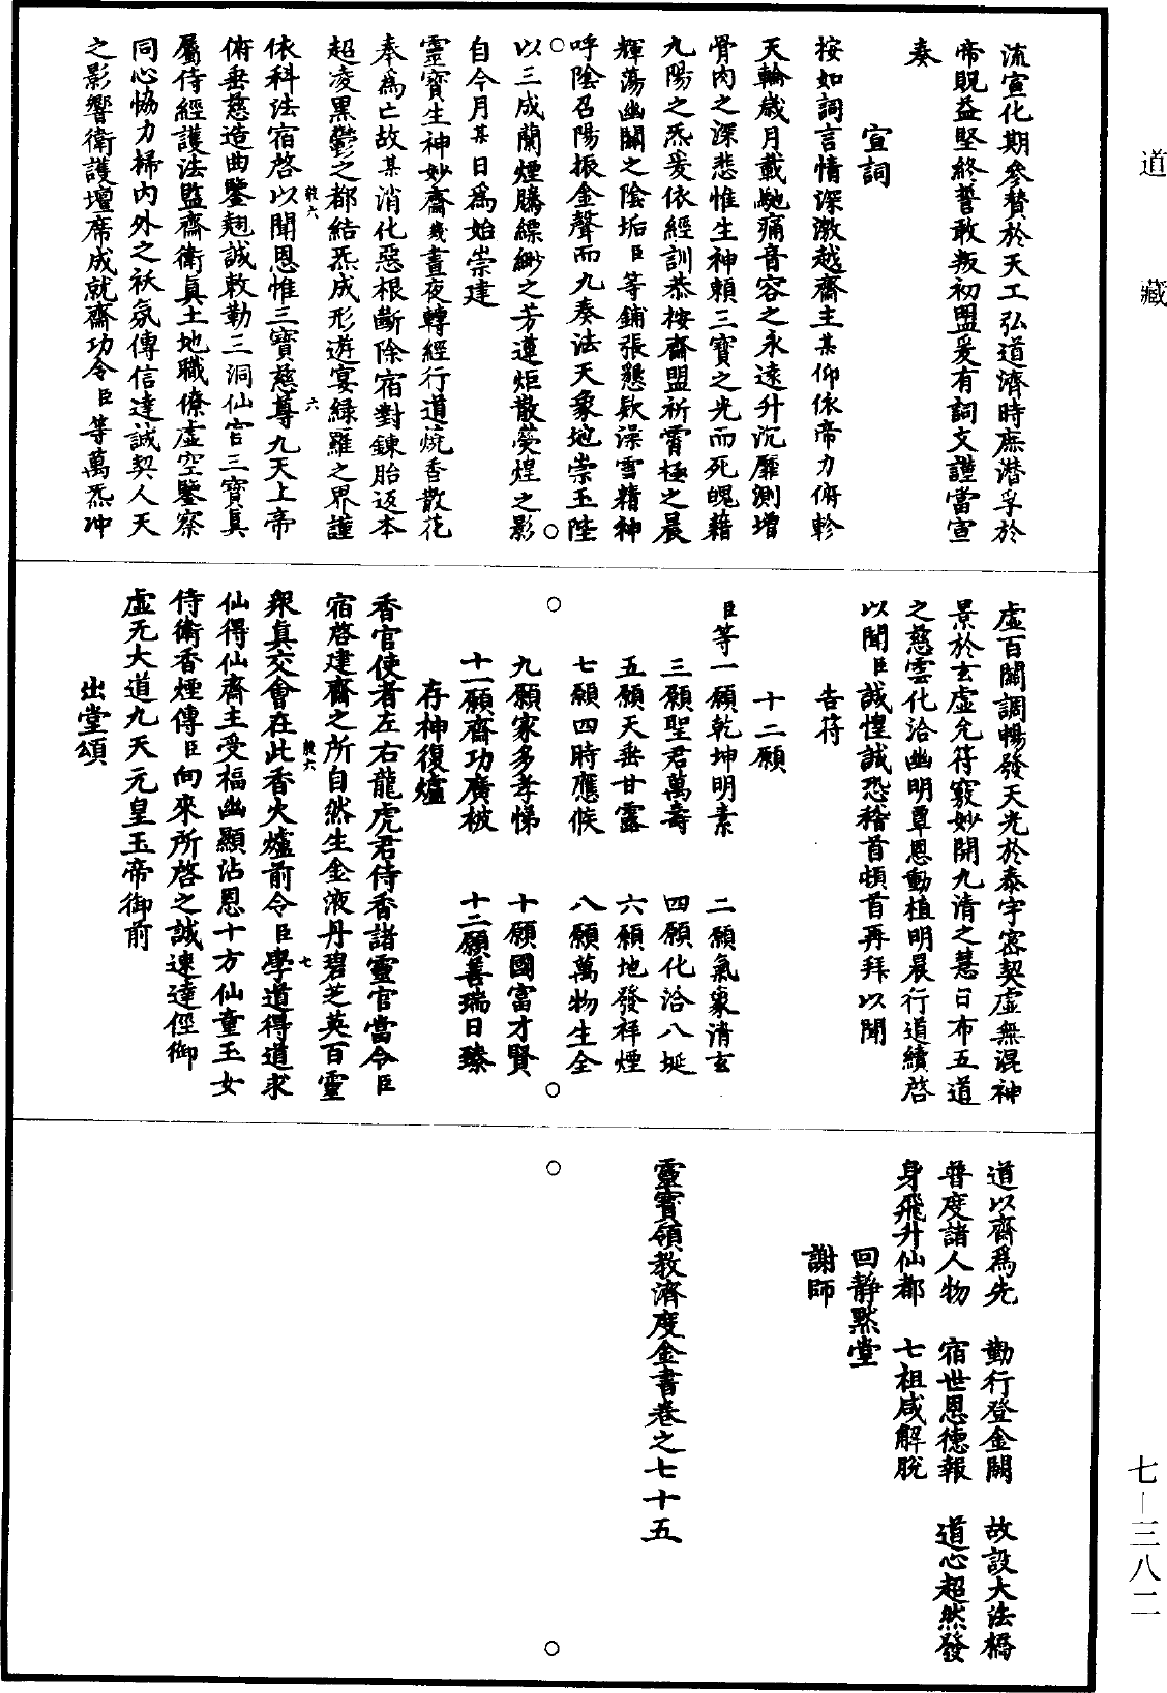 道藏
流宣化期參贊於天工弘道濟時庶潛孚於
帝貺益堅終誓敢叛初盟爰有詞文謹當宣
奏
宣詞
按如詞言情深激越齋主某仰依帝力俯軫
天輪歲月載馳痛音容之永遠升沉靡測增
骨肉之深悲惟生神賴三寶之光而死魄藉
九陽之炁爰依經訓恭按齋盟祈霄極之晨
輝蕩幽關之陰垢臣等鋪張懇欵澡雪精神
呼陰召陽振金聲而九奏法天象地崇玉陛
以三成蘭煙騰縹緲之芳蓮炬散熒煌之影
自今月某日爲始崇建
靈寶生神妙齋幾晝夜轉經行道燒香散花
奉爲亡故某消化惡根斷除宿對鍊胎返本
超凌黑鬱之都結炁成形遊宴綠羅之界謹
依科法宿啓以聞恩惟三寶慈尊九天上帝
俯垂慈造曲鑒翹誠敕勒三洞仙官三寶真
屬侍經護法監齋衛真土地職僚虛空鑒察
同心恊力掃內外之袄氛傳信達誠契人天
之影響衛護壇席成就齋功令臣等萬炁冲
虛百關調暢發天光於泰宇密契虛無混神
景於玄虛允符竅妙開九清之慧日布五道
之慈雲化洽幽明覃恩動植明晨行道續啓
以聞臣誠惶誠恐稽首頓首再拜以聞
告符
十二願
臣等一願乾坤明素 二願氣象清玄
三願聖君萬壽 四願化洽八埏
五願天垂甘露 六願地發祥煙
七願四時應候 八願萬物生全
九願家多孝悌 十願國富才賢
十一願齋功廣被 十二願善瑞日臻
存神復爐
香官使者左右龍虎君侍香諸靈官當令臣
宿啓建齋之所自然生金液丹碧芝英百靈
衆真交會在此香火爐前令臣學道得道求
仙得仙齋主受福幽顯沾恩十方仙童玉女
侍衛香煙傳臣向來所啓之誠速達徑御
虛无大道九天元皇玉帝御前
出堂頌
道以齋爲先 勤行登金闕 故設大法橋
普度諸人物 宿世恩德報 道心超然發
身飛升仙都 七祖咸解脫
回靜默堂
謝師
靈寶領教濟度金書卷之七十五
七—三八二